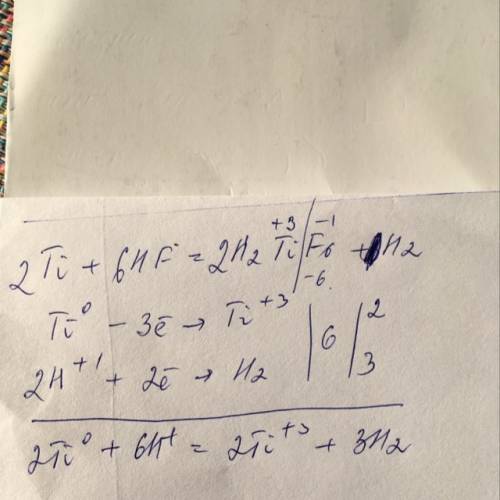 2Ti + 6HF = 2H₂Ti⁺³|F₆⁻¹ + H₂
-6
Ti⁰ - 3ē → Ti⁺³ | 6 | 2
2H⁺¹ + 2ē → H₂ | 3
2Ti⁰ + 6H⁺ = 2Ti⁺³ + 3H₂